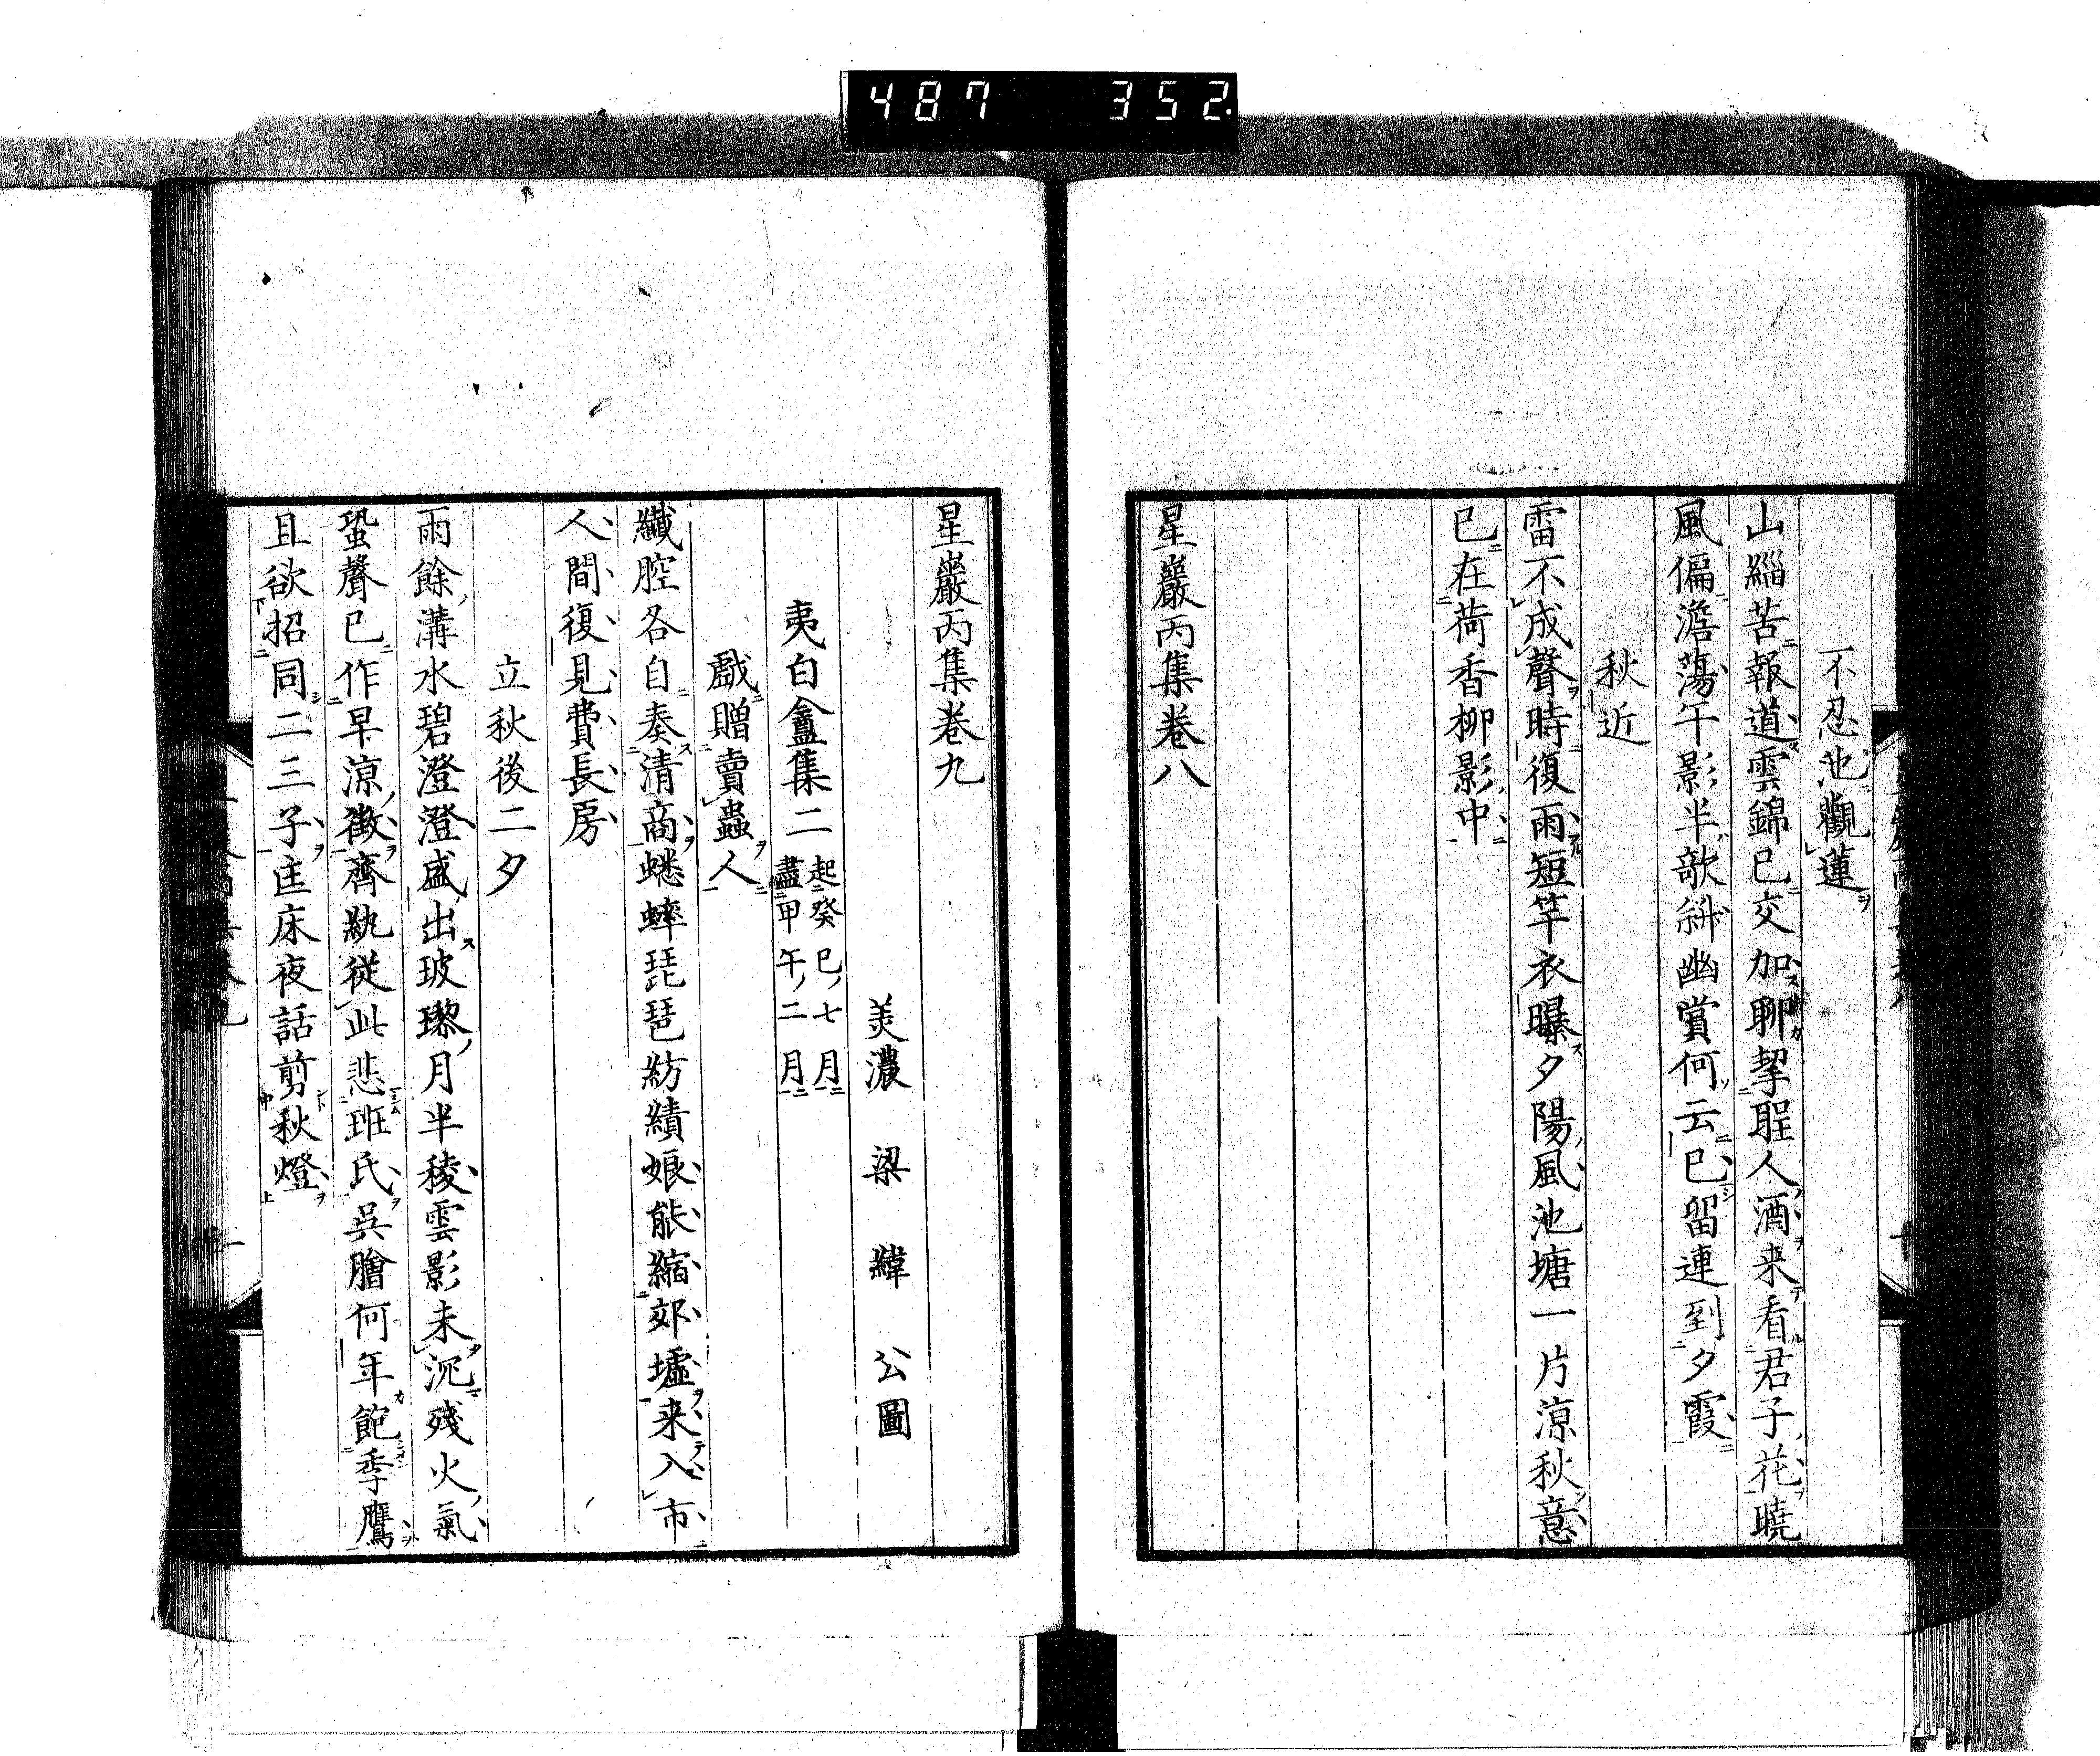 487 352
不忍池觀蓮
山緇苦報道雲錦已交加聊挈聖人酒来看君子花曉
風偏澹蕩午影半欹斜幽賞何云已留連到夕霞
秋近
雷不成聲時復雨短竿衣曝夕陽風池塘一片涼秋意
已在荷香柳影中
星巖丙集巻八
星巖丙集巻九
美濃 梁緯 公圖
夷白盦集二 起癸巳七月
盡甲午二月
戲贈賣蟲人
纎腔各自奏清商蟋蟀琵琶紡績娘能縮郊墟来入市
人間復見費長房
立秋後二夕
雨餘溝水碧澄澄盛出玻瓈月半稜雲影未沉殘火氣
蛩聲已作早涼徵齊紈從此悲班氏呉膾何年飽季鷹
且欲招同二三子匡床夜話剪秋燈